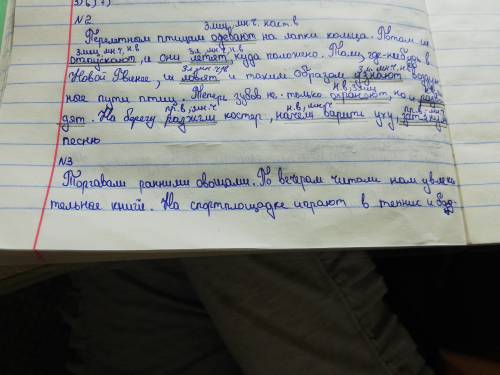 3)б) 7)
N 2
3 лиц, мн ч. наст. в
Перелётным птицам одевают на лапки кольца. Потом их
3 лиц, мн ч, н.в 3 л, мн ч. н.в
отпускают, и они летят, куда положено. Там, где-нибудь в
3 л, мн ч, н.в 3 л. мн ч, н.в
Новой Гвинее, их ловят и таким образом узнают воздуш
н.в, 3 лиц
ные пути птиц. Теперь зубров не только охраняют, но и разво
пр. в, мн ч н.в, мн ч пр. в
дят. На берегу разожгли костёр, начали варить уху, затянули
песню
N3
Торговали ранними овощами. По вечерам читали нам увлека
тельные книги. На спортплощадке играют в теннис и бад